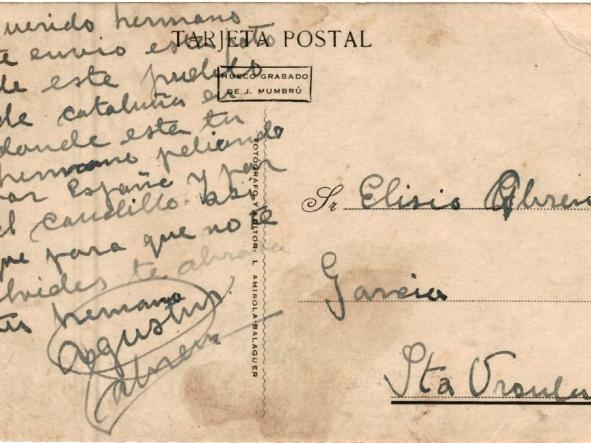 querido hermano
te envio esta foto
de este pueblo
de cataluña en
donde esta tu
hermano peliando
por España y por
el caudillo. asi
que para que no me
olvides te abraza
tu hermano
Agustin
Abreu
TARJETA POSTAL
HUECOGRABADO
DE J. MUMBRÚ
FOTÓGRAFO Y EDITOR: L. AMIROLA-BALAGUER
Sr Elisio Abreu
Garcia
Sta Ursula